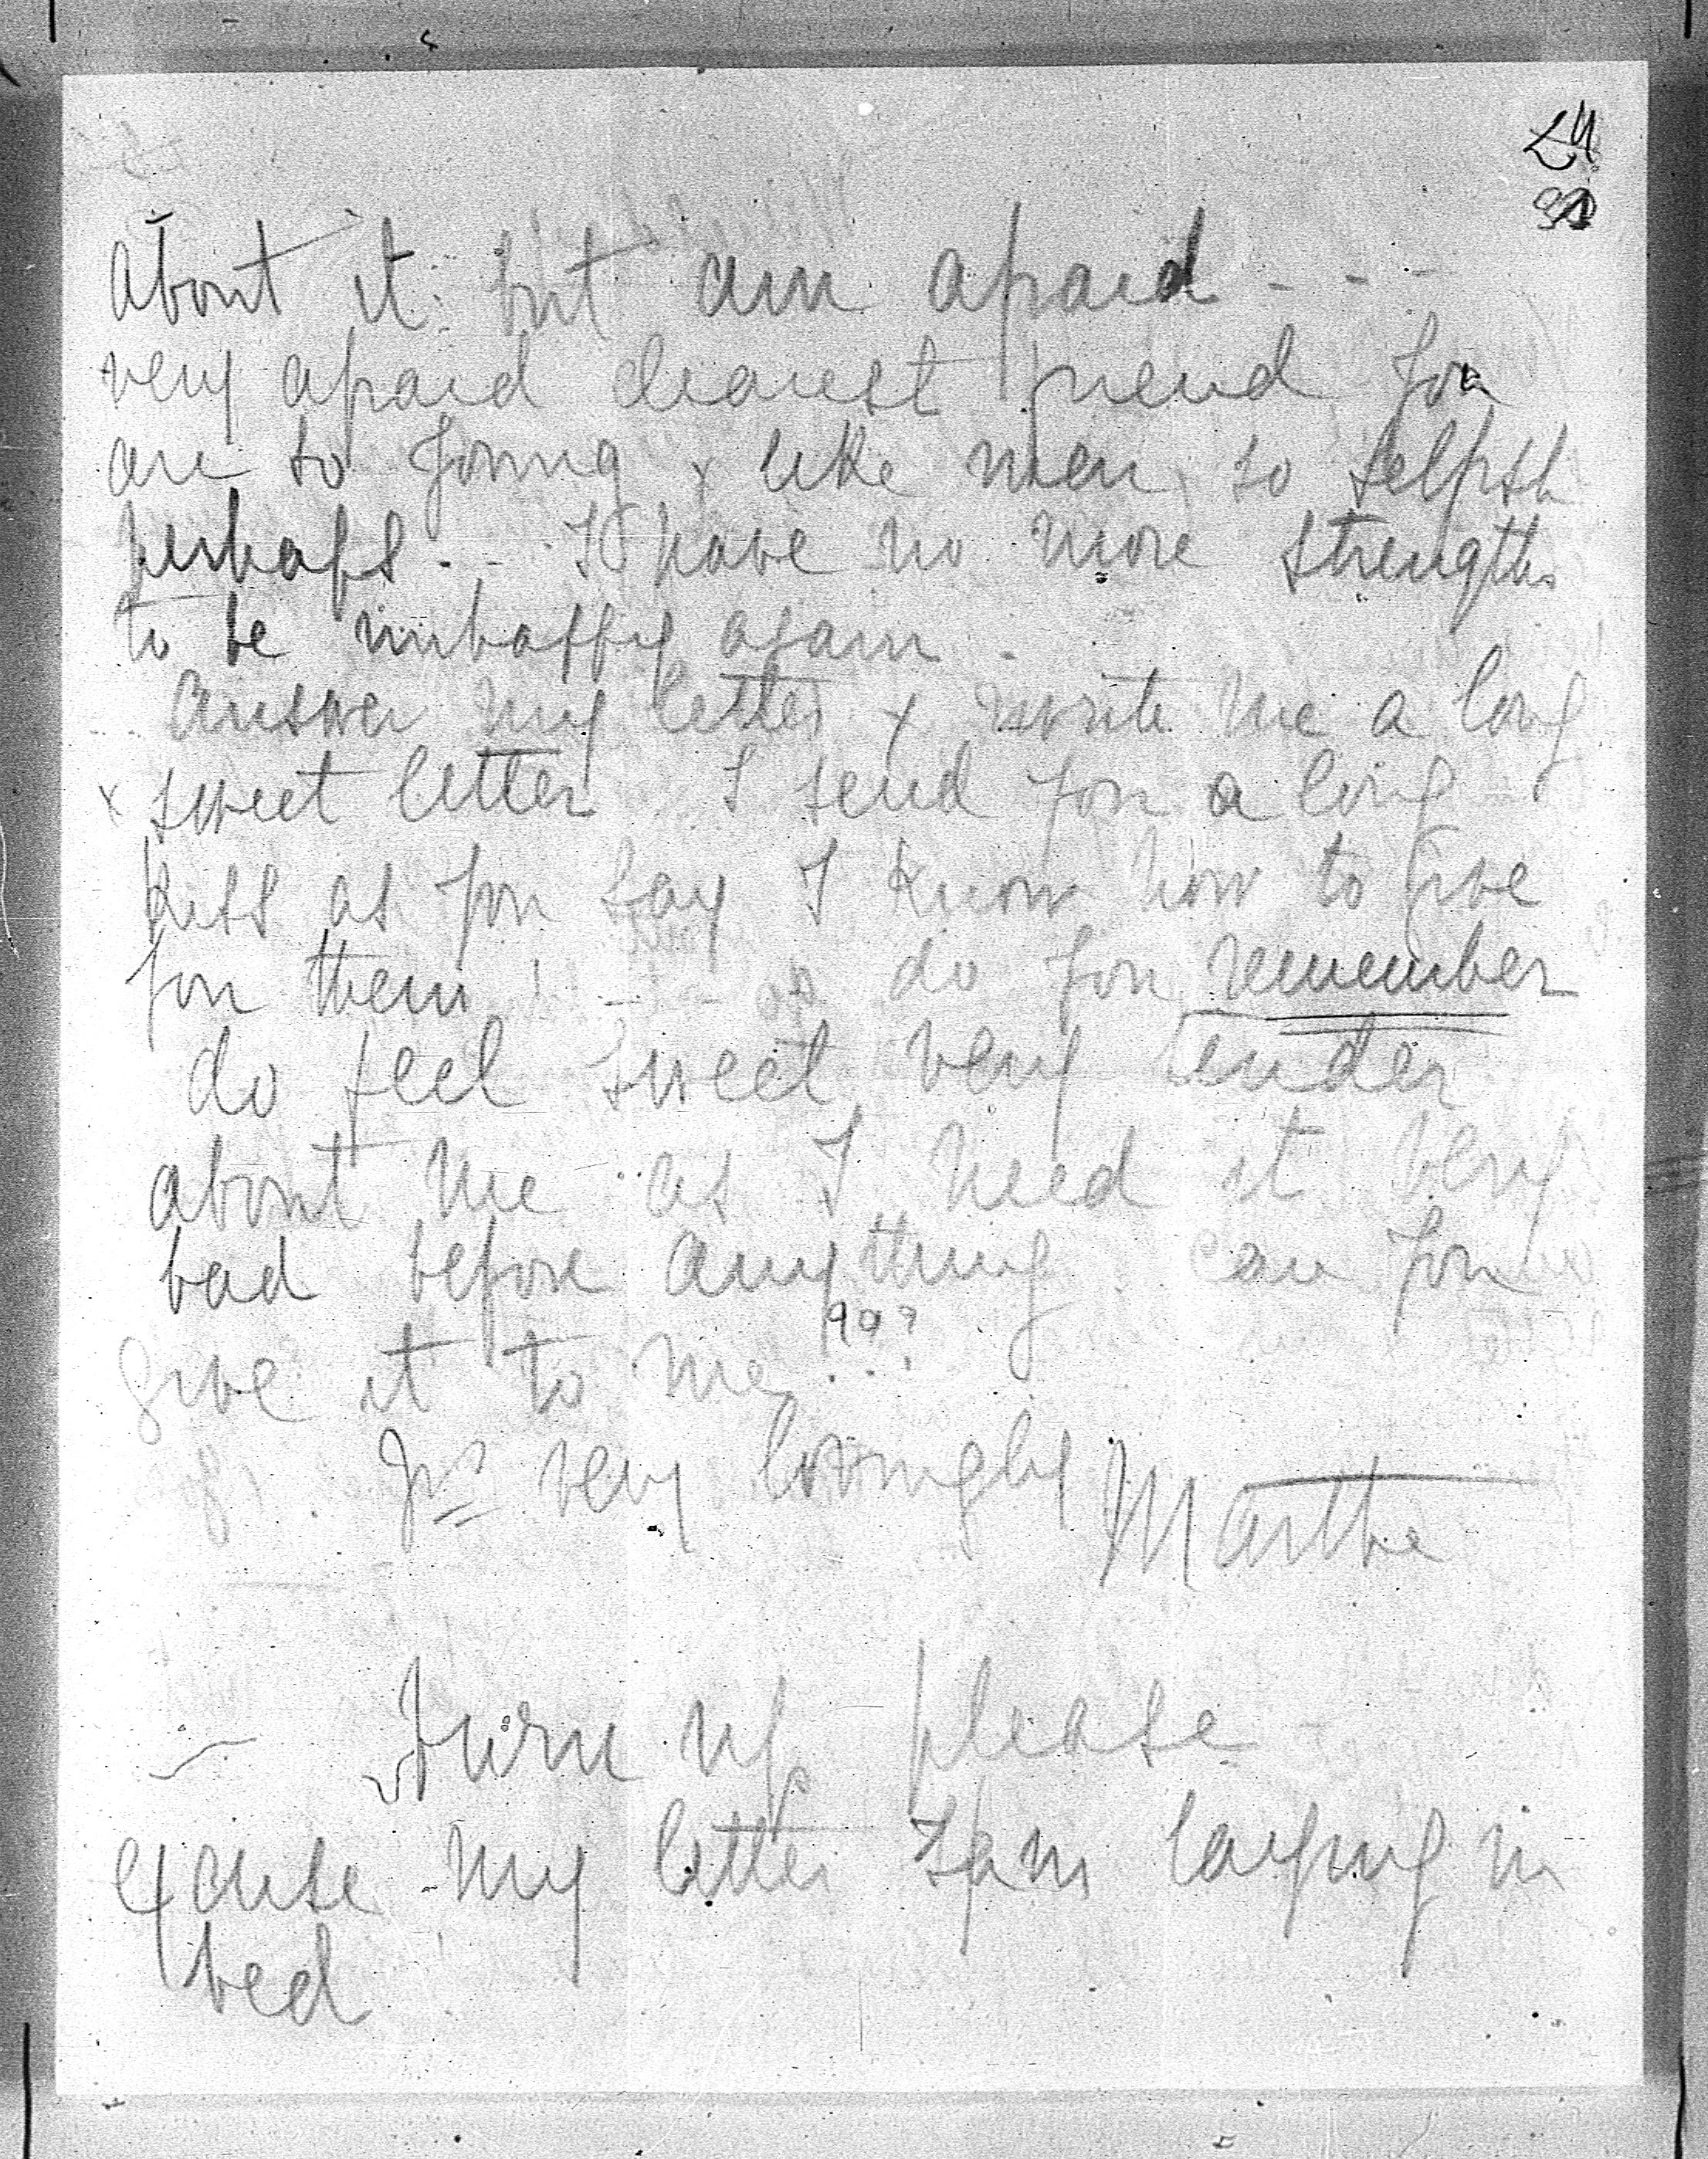 about it but am afraid - - -
very afraid dearest friend you
are so young & like men so selfish
perhaps... I have no more strengths
to be unhappy again.
Answer my letter & write me a long
& sweet letter I send you a long
kiss as you say I know how to give
you them! - - - do you remember
do feel sweet very tender
about me as I need it very
bad before anything can you
give it to me..???
Yrs very lovingly Marthe
Turn up please
excuse my letter I am laying in
bed